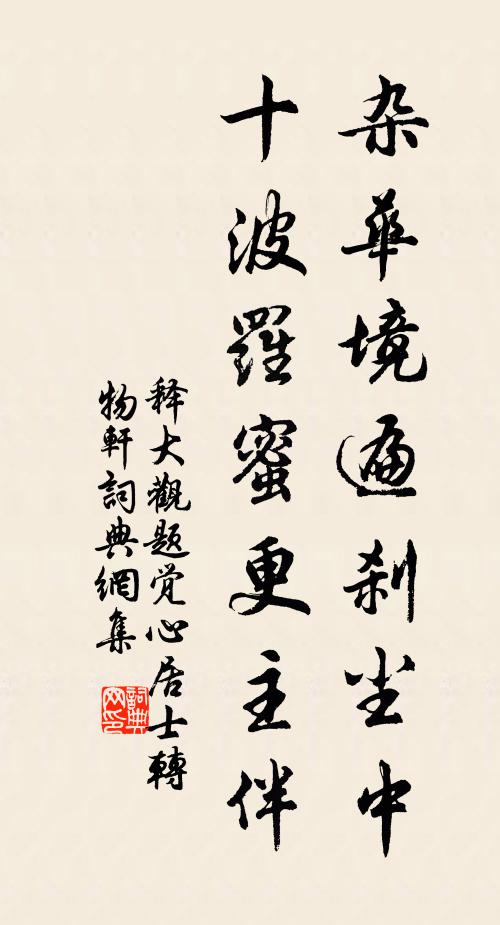 杂華境遍刹尘中
十波羅蜜更主伴
释大觀题觉心居士轉
物軒詞典網集
詞典网印